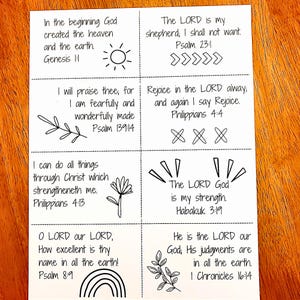 In the beginning God
created the heaven
and the earth.
Genesis 1:1
The LORD is my
shepherd, I shall not want.
Psalm 23:1
I will praise thee, for
I am fearfully and
wonderfully made
Psalm 139:14
Rejoice in the LORD alway,
and again I say Rejoice.
Philippians 4:4
I can do all things
through Christ which
strengtheneth me.
Philippians 4:13
The LORD God
is my strength.
Habakuk 3:19
O LORD our LORD,
How excellent is thy
name in all the earth!
Psalm 8:9
He is the LORD our
God, His judgments are
in all the earth.
1 Chronicles 16:14